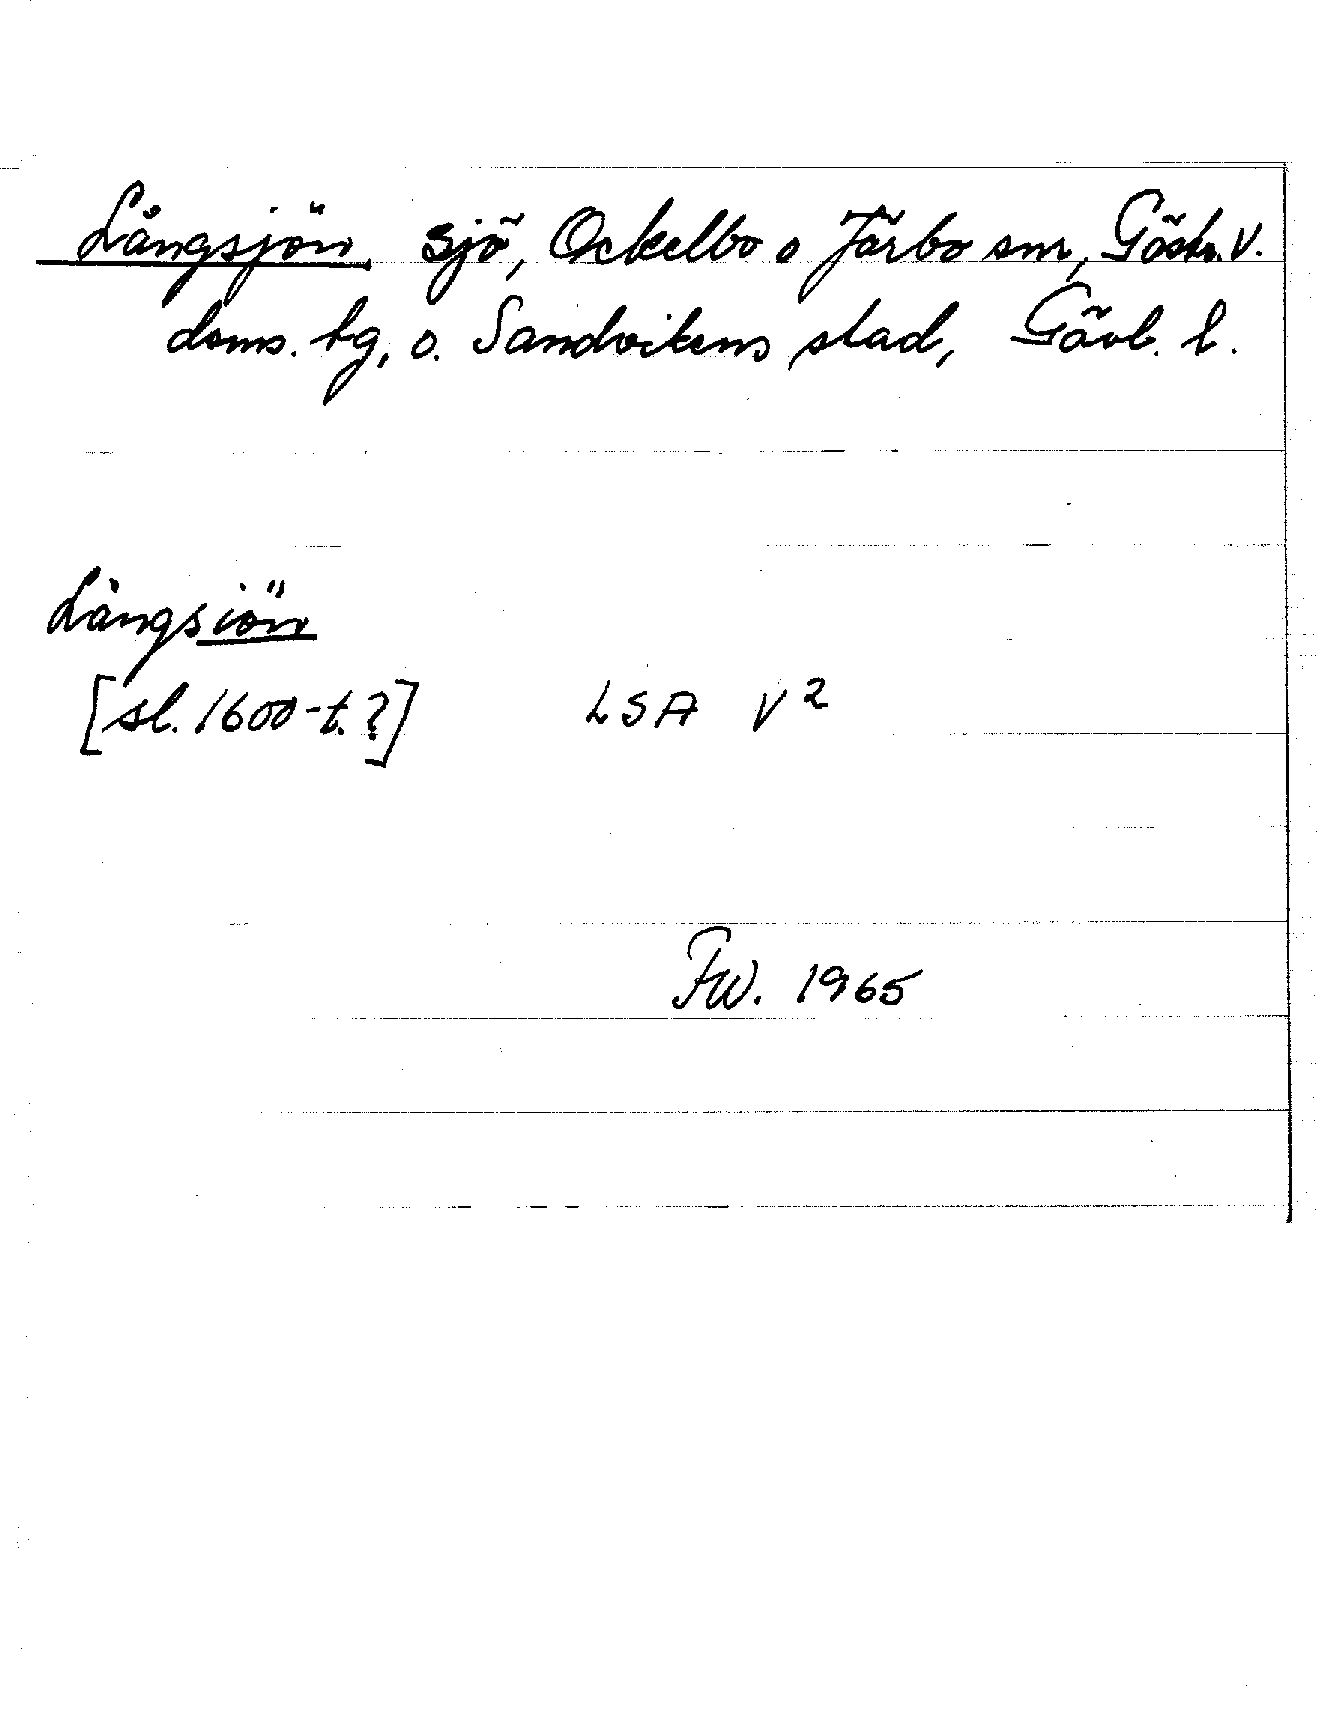 Långsjön, sjö, Ockelbo o Järbo snr, Gästr. V.
doms. tg, o. Sandvikens stad, Gävl. l.
Långsiön
[sl. 1600-t.?] LSA V²
FW. 1965